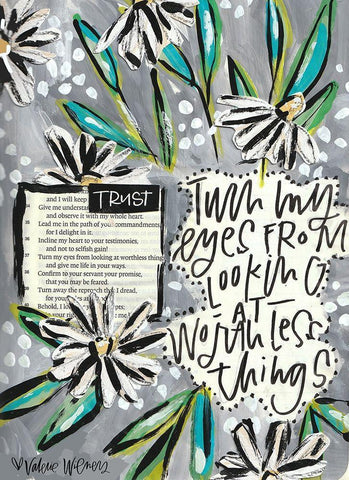 TRUST
and I will keep
Give me understan
and observe it with my whole heart.
35 Lead me in the path of your commandments,
for I delight in it.
36 Incline my heart to your testimonies,
and not to selfish gain!
37 Turn my eyes from looking at worthless things;
and give me life in your ways.
38 Confirm to your servant your promise,
that you may be feared.
39 Turn away the reproach that I dread,
for your
Behold, I lo
Turn my
eyes FROM
LOOKING
AT
WORTHLESS
things
Valerie Wieners